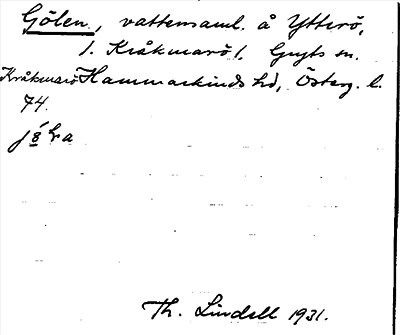 Gölen, vattensaml. å Ytterö,
/. Kråkmarö /. Gryts sn.
Kråkmarö Hammarkinds hd, Österg. l.
74.
Th. Lindell 1931.